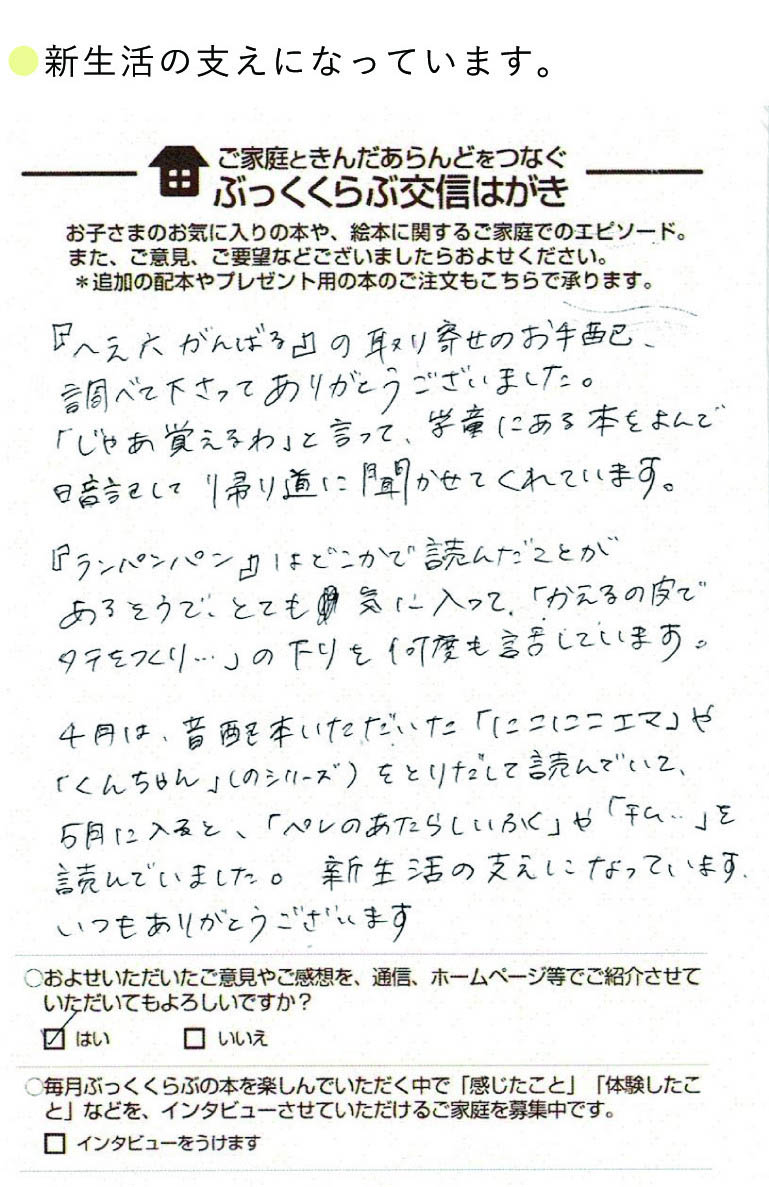 新生活の支えになっています。
ご家庭ときんだあらんどをつなぐ
ぶっくくらぶ交信はがき
お子さまのお気に入りの本や、絵本に関するご家庭でのエピソード。
また、ご意見、ご要望などございましたらおよせください。
＊追加の配本やプレゼント用の本のご注文もこちらで承ります。
『へえ六がんばる』の取り寄せのお手配、
調べて下さってありがとうございました。
「じゃあ覚えるわ」と言って、学童にある本をよんで
暗記して帰り道に聞かせてくれています。
『ランパンパン』はどこかで読んだことが
あるそうで、とても気に入って、「かえるの皮で
タテをつくり…」の下りを何度も話しています。
4月は、昔配本いただいた「にこにこエマ」や
「くんちゃん」(のシリーズ)をとりだして読んでいて、
5月に入ると、「ペレのあたらしいふく」や「私…」を
読んでいました。新生活の支えになっています.
いつもありがとうございます
○およせいただいたご意見やご感想を、通信、ホームページ等でご紹介させて
いただいてもよろしいですか？
☑はい □いいえ
○毎月ぶっくくらぶの本を楽しんでいただく中で「感じたこと」「体験したこ
と」などを、インタビューさせていただけるご家庭を募集中です。
□インタビューをうけます